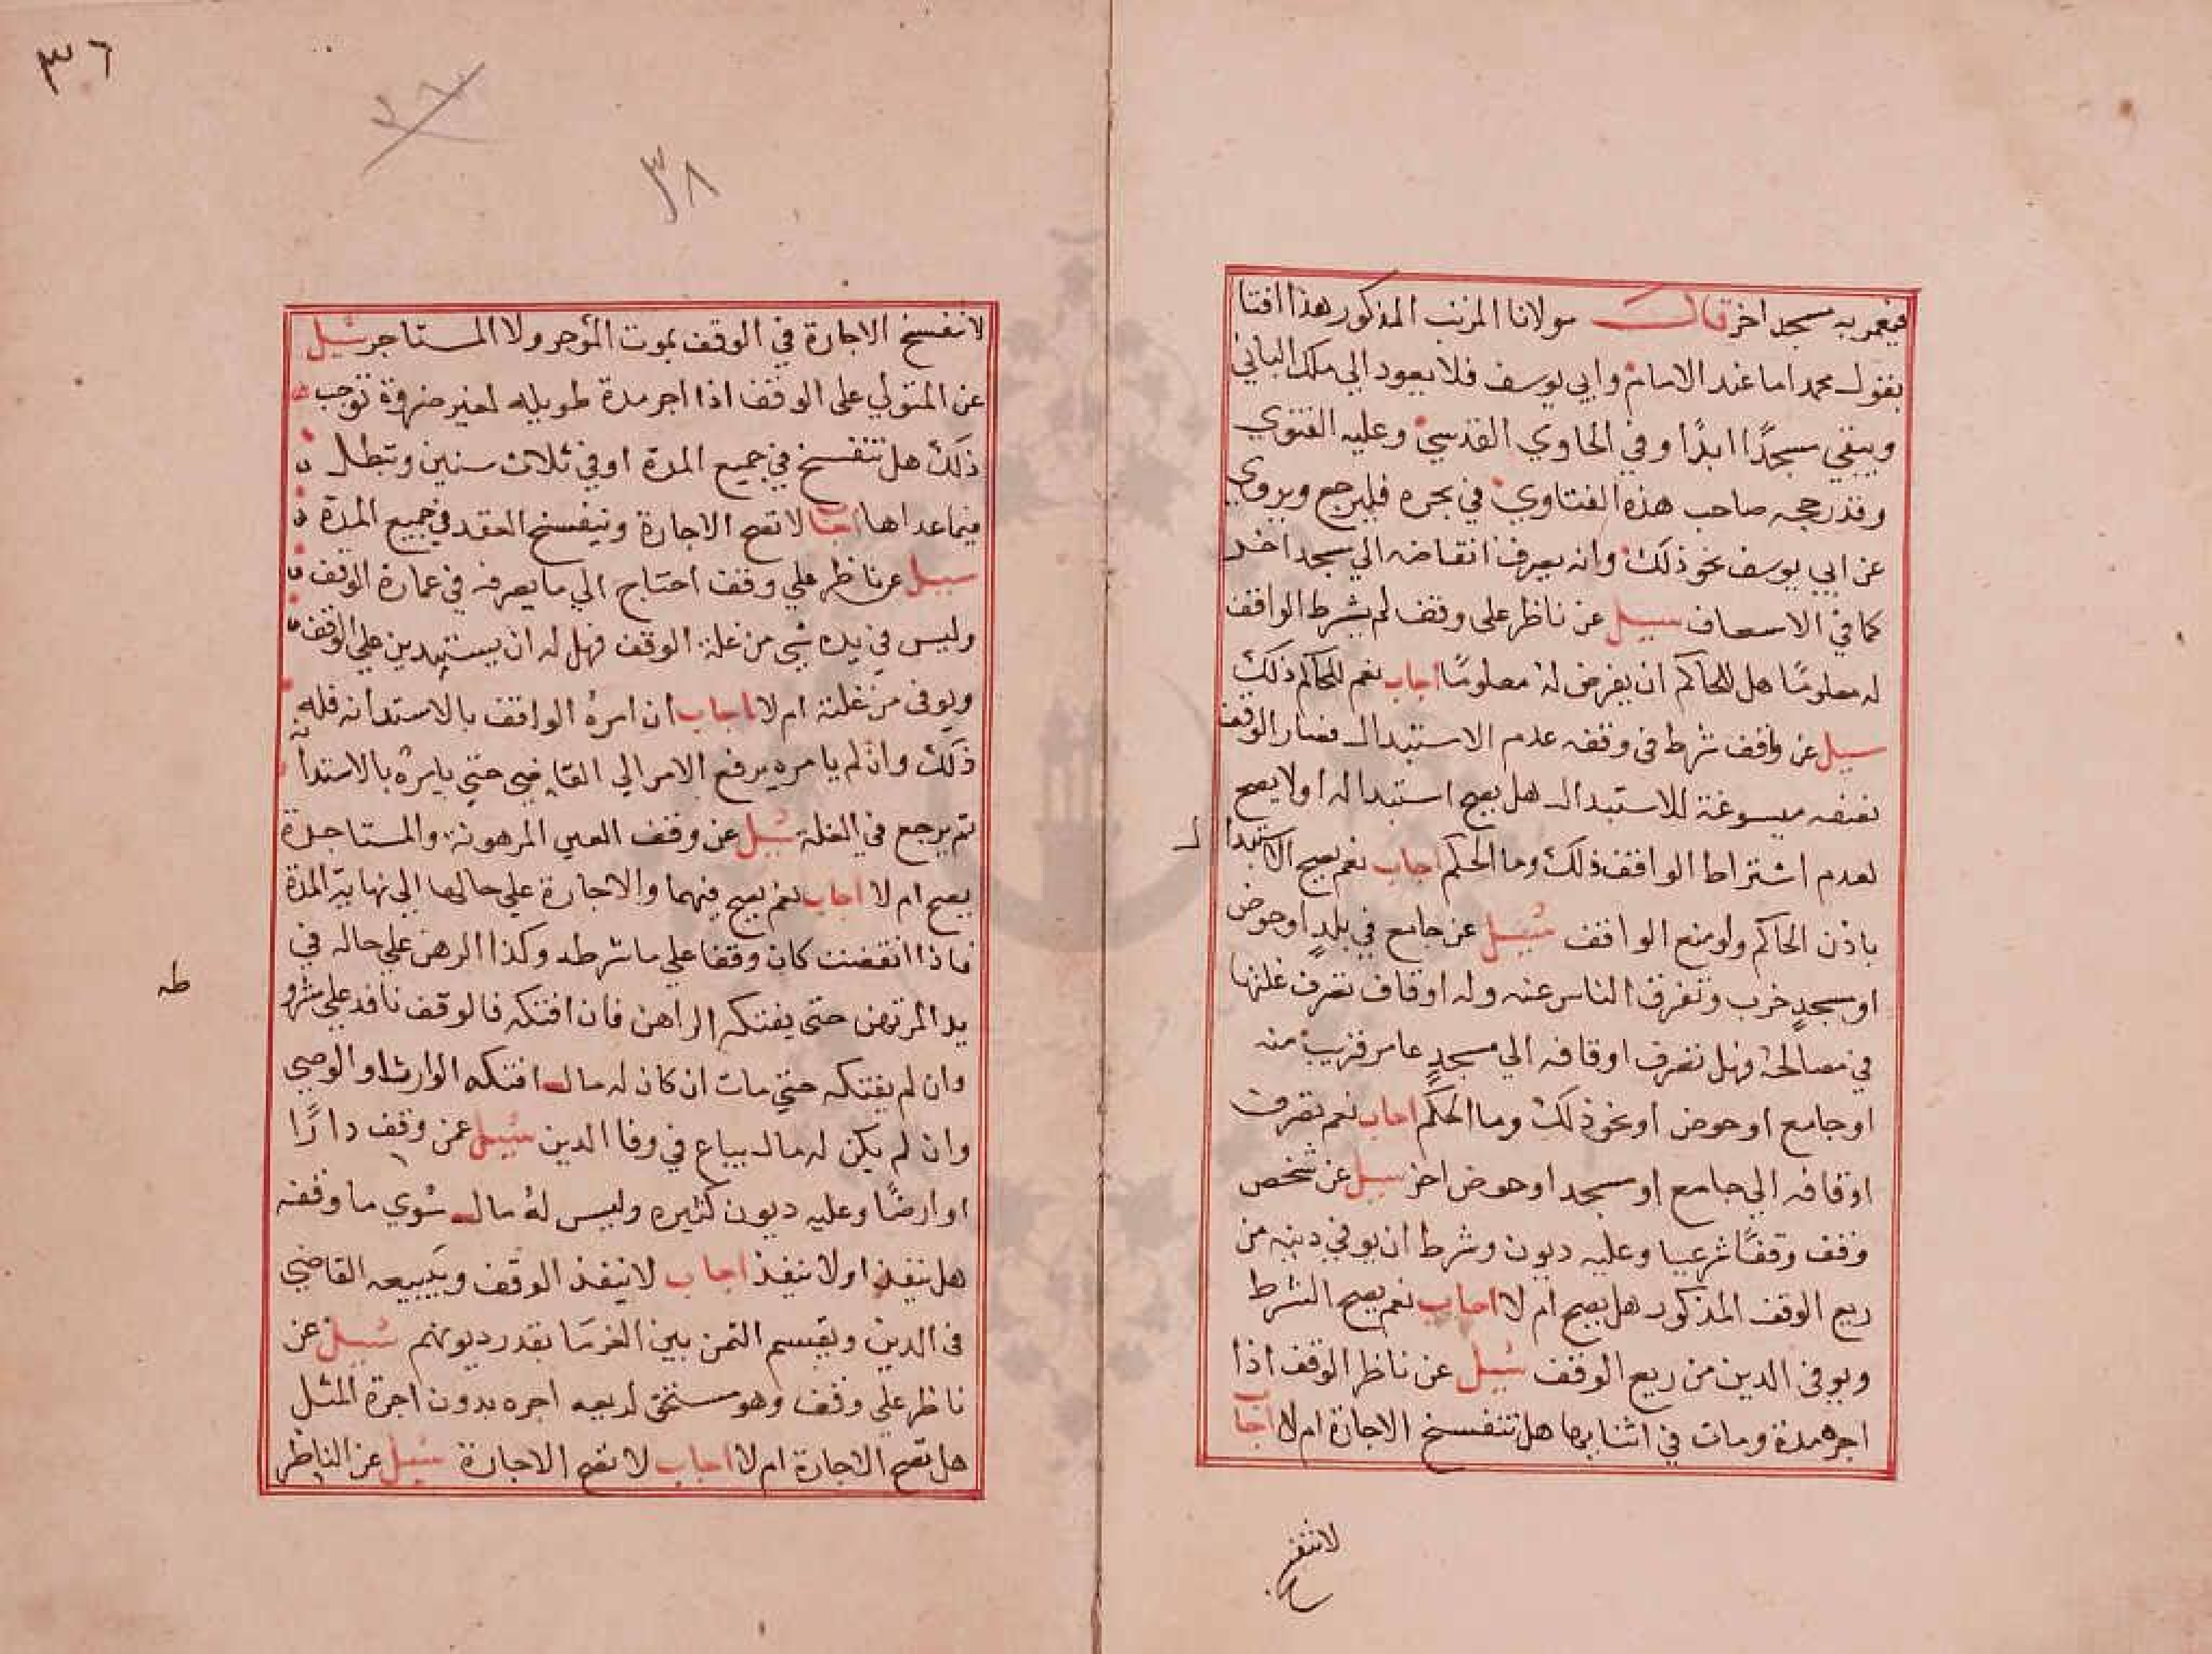 فيعمر به مسجد اخر قال مولانا المرتب المذكور هذا افتا
بقول محمد اما عند الامام وابي يوسف فلا يعود الى ملك الباني
ويبقي مسجدًا ابدًا وفي الحاوي القدسي وعليه الفتوي
وقد رجحه صاحب هذه الفتاوي في بحره فليرجع ويروي
عن ابي يوسف نحو ذلك وانه يصرف انقاضه الي مسجد اخر
كما في الاسعاف سيل عن ناظر على وقف لم يشرط الواقف
له معلومًا هل للحاكم ان يفرض له معلومًا اجاب نعم للحاكم ذلك
سيل عن واقف شرط في وقفه عدم الاستبدال فصار الوقف
بصفه مسوغة للاستبدال هل يصح استبداله اولا يصح
لعدم اشتراط الواقف ذلك وما الحكم اجاب نعم يصح الاستبدا
ل
باذن الحاكم ولو منع الواقف سيل عن جامع في بلدٍ اوحوض
او مسجدٍ خرب وتفرق الناس عنه وله اوقاف تصرف غلتها
في مصالحه فهل تصرف اوقافه الي مسجدٍ عامر قريب منه
او جامع اوحوض او نحو ذلك وما الحكم اجاب نعم تصرف
اوقافه الي جامع او مسجد اوحوض اخر سيل عن شخص
وقف وقفًا شرعيا وعليه ديون وشرط ان يوفي دينه من
ريع الوقف المذكور هل يصح ام لا اجاب نعم يصح الشرط
ويوفى الدين من ريع الوقف سيل عن ناظر الوقف اذا
اجره مدة ومات في اثنايها هل تنفسخ الاجارة ام لا اجاب
لا تنفسخ
٣٦
٣٨
لا تنفسخ الاجارة في الوقف بموت المؤجر ولا المستاجر سيل
عن المتولي على الوقف اذا اجر مدة طويله لغير ضرورة توجب
ذلك هل تنفسخ في جميع المدة او في ثلاث سنين وتبطل
فيما عداها اجاب لا تصح الاجارة وينفسخ العقد في جميع المدة
سيل عن ناظر علي وقف احتاج الي ما يصرفه في عمارة الوقف
وليس في يده شي من غلة الوقف فهل له ان يستدين علي الوقف
ويوفى من غلته ام لا اجاب ان امره الواقف بالاستدانه فله
ذلك وان لم يامره يرفع الامر الي القاضي حتي يامره بالاستدا
نه
ثم يرجع في الغلة سيل عن وقف العين المرهونة والمستاجرة
يصح ام لا اجاب نعم يصح فيهما والاجارة علي حالها الي نهاية المدة
فاذا انقضت كان وقفا علي ما شرطه وكذا الرهن علي حاله في
يد المرتهن حتى يفتكه الراهن فان افتكه فالوقف نافد علي شرو
طه
وان لم يفتكه حتي مات ان كان له مال افتكه الوارث او الوصي
وان لم يكن له مال يباع في وفا الدين سيل عمن وقف دارًا
او ارضًا وعليه ديون كثيره وليس له مال سوي ما وقفه
هل ينفذ او لا ينفذ اجاب لا ينفذ الوقف ويبيعه القاضي
في الدين ويقسم الثمن بين الغرما بقدر ديونهم سيل عن
ناظر علي وقف وهو مستحق لريعه اجره بدون اجرة المثل
هل تصح الاجارة ام لا اجاب لا تصح الاجارة سيل عن الناظر